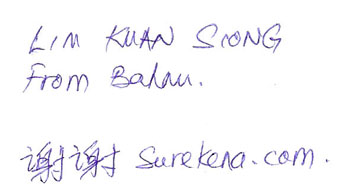 LIM KUAN SIONG
From Bahau.
谢谢 Surekena.com.